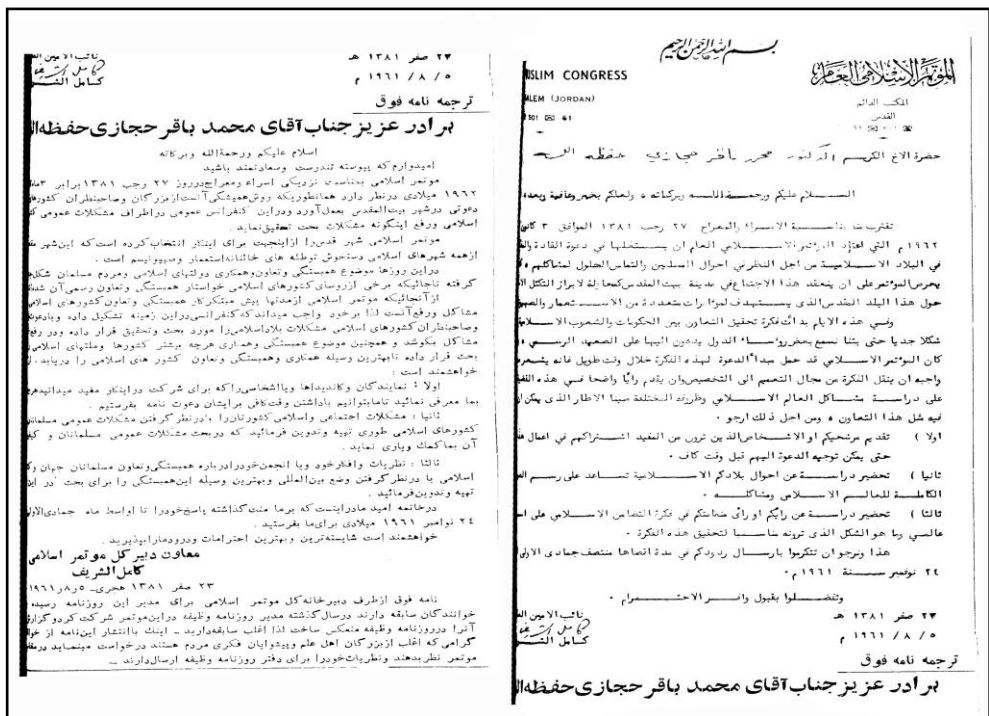 بسم الله الرحمن الرحيم
المؤتمر الإسلامي العام
MUSLIM CONGRESS
المكتب الدائم
LEM (JORDAN)
القدس
حضرة الاخ الكريم الدكتور محمد باقر حجازي حفظه الله
السلام عليكم ورحمة الله وبركاته ولعلكم بخير وعافية وبعد
تقترب مناسبة الاسراء والمعراج ٢٧ رجب ١٣٨١ الموافق ٣ كانون
١٩٦٢م التي اعتاد المؤتمر الاسلامي العام ان يستغلها في دعوة القادة
في البلاد الاسلامية من اجل النظر في احوال المسلمين والتماس الحلول لمشاكلهم
يحرص المؤتمر على ان ينعقد هذا الاجتماع في مدينة بيت المقدس كمحاولة لابراز التكتل
حول هذا البلد المقدس الذى يستهدف لمؤامرات متعددة من الاستعمار
وفي هذه الايام بدأت فكرة تحقيق التعاون بين الحكومات والشعوب الاسلامية
شكلا جديا حتى بتنا نسمع بعض رؤساء الدول يدعون اليها على الصعيد الرسمي
كان المؤتمر الاسلامي قد حمل مبدأ الدعوة لهذه الفكرة خلال وقت طويل فانه يشعر
واجبه ان ينقل الفكرة من مجال التعميم الى التخصيص وان يقدم رأيا واضحا في هذه
على دراسة مشاكل العالم الاسلامي وظروفه المختلفة مبينا الاطار الذى يمكن ان
فيه مثل هذا التعاون ومن اجل ذلك ارجو ٠
اولا ) تقديم مرشحيكم او الاشخاص الذين ترون من المفيد اشتراكهم في اعمال
حتى يمكن توجيه الدعوة اليهم قبل وقت كاف ٠
ثانيا ) تحضير دراسة عن احوال بلادكم الاسلامية تساعد على رسم
الكاملة للعالم الاسلامي ومشاكله ٠
ثالثا ) تحضير دراسة عن رأيكم او رأى منظمتكم في فكرة التضامن الاسلامي على
عالمي وما هو الشكل الذى ترونه مناسبا لتحقيق هذه الفكرة ٠
هذا ونرجو ان تتكرموا بارسال ردودكم في مدة اقصاها منتصف جمادى الاولى
٢٤ نوفمبر سنة ١٩٦١م٠
وتفضلوا بقبول وافر الاحترام ٠
٢٣ صفر ١٣٨١ هـ
نائب الامين
٥ / ٨ / ١٩٦١ م
كامل
ترجمه نامه فوق
برادر عزیز جناب آقای محمد باقر حجازی حفظه
نائب الامین
٢٣ صفر ١٣٨١ هـ
٥ / ٨ / ١٩٦١ م
کامل
ترجمه نامه فوق
برادر عزیز جناب آقای محمد باقر حجازی حفظه
اسلام علیکم ورحمةالله وبرکاته
امیدوارم که پیوسته تندرست وسعادتمند باشید
موتمر اسلامی بمناسبت نزدیکی اسراء ومعراج درروز ۲۷ رجب ۱۳۸۱ برابر ۳
۱۹۶۲ میلادی درنظر دارد همانطوریکه روش همیشگی آنست از بزرگان وصاحبنظران کشورهای
دعوتی درشهر بیت المقدس بعمل آورد ودراین کنفرانس عمومی دراطراف مشکلات عمومی
اسلامی ورفع اینگونه مشکلات بحث وتحقیق نماید ٠
موتمر اسلامی شهر قدس را از اینجهت برای اینکار انتخاب کرده است که این شهر
از همه شهرهای اسلامی دستخوش توطئه های خائنانه استعمار وصیهونیسم است ٠
دراین روزها موضوع همبستگی وتعاون وهمکاری دولتهای اسلامی ومردم مسلمان
گرفته تاجائیکه برخی ازروسای کشورهای اسلامی خواستار همبستگی وتعاون رسمی آن
ازآنجائیکه موتمر اسلامی ازمدتها پیش مبتکر کار همبستگی وتعاون کشورهای اسلامی
مشاکل ورفع آنست لذا برخود واجب میداند که کنفرانسی دراین زمینه تشکیل داده
وصاحبنظران کشورهای اسلامی مشکلات بلاد اسلامی را مورد بحث وتحقیق قرار داده ودر
مشاکل بکوشد و همچنین موضوع همبستگی وهمکاری هرچه بیشتر کشورها وملتهای اسلامی
بحث قرار داده تا بهترین وسیله همکاری وهمبستگی وتعاون کشور های اسلامی را دریابد
خواهشمند است :
اولا : نمایندگان وکاندیداها ویا اشخاصی را که برای شرکت دراینکار مفید میدانید
بما معرفی نمائید تا ما بتوانیم با داشتن وقت کافی برایشان دعوت نامه بفرستیم ٠
ثانیا : مشکلات اجتماعی واسلامی کشورتان را با درنظر گرفتن مشکلات عمومی
کشورهای اسلامی طوری تهیه وتدوین فرمائید که دربحث مشکلات عمومی مسلمانان و
آن بما کمک ویاری نماید ٠
ثالثا : نظریات وافکار خود ویا انجمن خودرا درباره همبستگی وتعاون مسلمانان جهان
اسلامی با درنظر گرفتن وضع بین المللی وبهترین وسیله این همبستگی را برای بحث در
تهیه وتدوین فرمائید ٠
درخاتمه امید ما دراینست که برما منت گذاشته پاسخ خودرا تا اواسط ماه جمادی الاول
۲۴ نوامبر ۱۹۶۱ میلادی برای ما بفرستید ٠
خواهشمند است شایسته ترین وبهترین احترامات ودرود مارا بپذیرید ٠
معاون دبیر کل موتمر اسلامی
کامل الشریف
۲۳ صفر ۱۳۸۱ هجری
نامه فوق ازطرف دبیرخانه کل موتمر اسلامی برای مدیر این روزنامه رسیده
خوانندگان سابقه دارند درسال گذشته مدیر روزنامه وظیفه دراین موتمر شرکت کرد و
آنرا درروزنامه وظیفه منعکس ساخت لذا اغلب سابقه دارید ـ اینک با انتشار این نامه از
گرامی که اغلب ازبزرگان اهل علم وپیشوایان فکری مردم هستند درخواست مینماید
موتمر نظر بدهند ونظریات خودرا برای دفتر روزنامه وظیفه ارسال دارند ـ